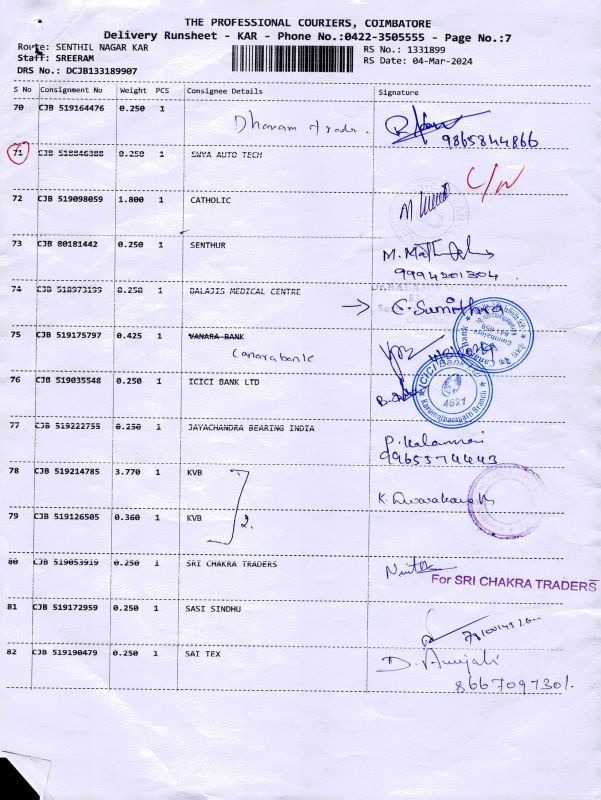 THE PROFESSIONAL COURIERS, COIMBATORE
Delivery Runsheet - KAR - Phone No.:0422-3505555 - Page No.:7
Route: SENTHIL NAGAR KAR
Staff: SREERAM
DRS No.: DCJB133189907
RS No.: 1331899
RS Date: 04-Mar-2024
S No Consignment No Weight PCS Consignee Details Signature
70 CJB 519164476 0.250 1
Dhanam trade. 9865844866
71 CJB 518846388 0.250 1 SWYA AUTO TECH
C/N
72 CJB 519098059 1.800 1 CATHOLIC
73 CJB 80181442 0.250 1 SENTHUR
9994201304
74 CJB 518973199 0.250 1 BALAJIS MEDICAL CENTRE
C. Sumithra
75 CJB 519175797 0.425 1 VANARA BANK
Canarabank
76 CJB 519035548 0.250 1 ICICI BANK LTD
ICICI Bank
4621
Branch
77 CJB 519222755 0.250 1 JAYACHANDRA BEARING INDIA
9965574443
78 CJB 519214785 3.770 1 KVB
79 CJB 519126505 0.360 1 KVB
2.
80 CJB 519053919 0.250 1 SRI CHAKRA TRADERS
For SRI CHAKRA TRADERS
81 CJB 519172959 0.250 1 SASI SINDHU
82 CJB 519190479 0.250 1 SAI TEX
D. Anjali
8667097301.